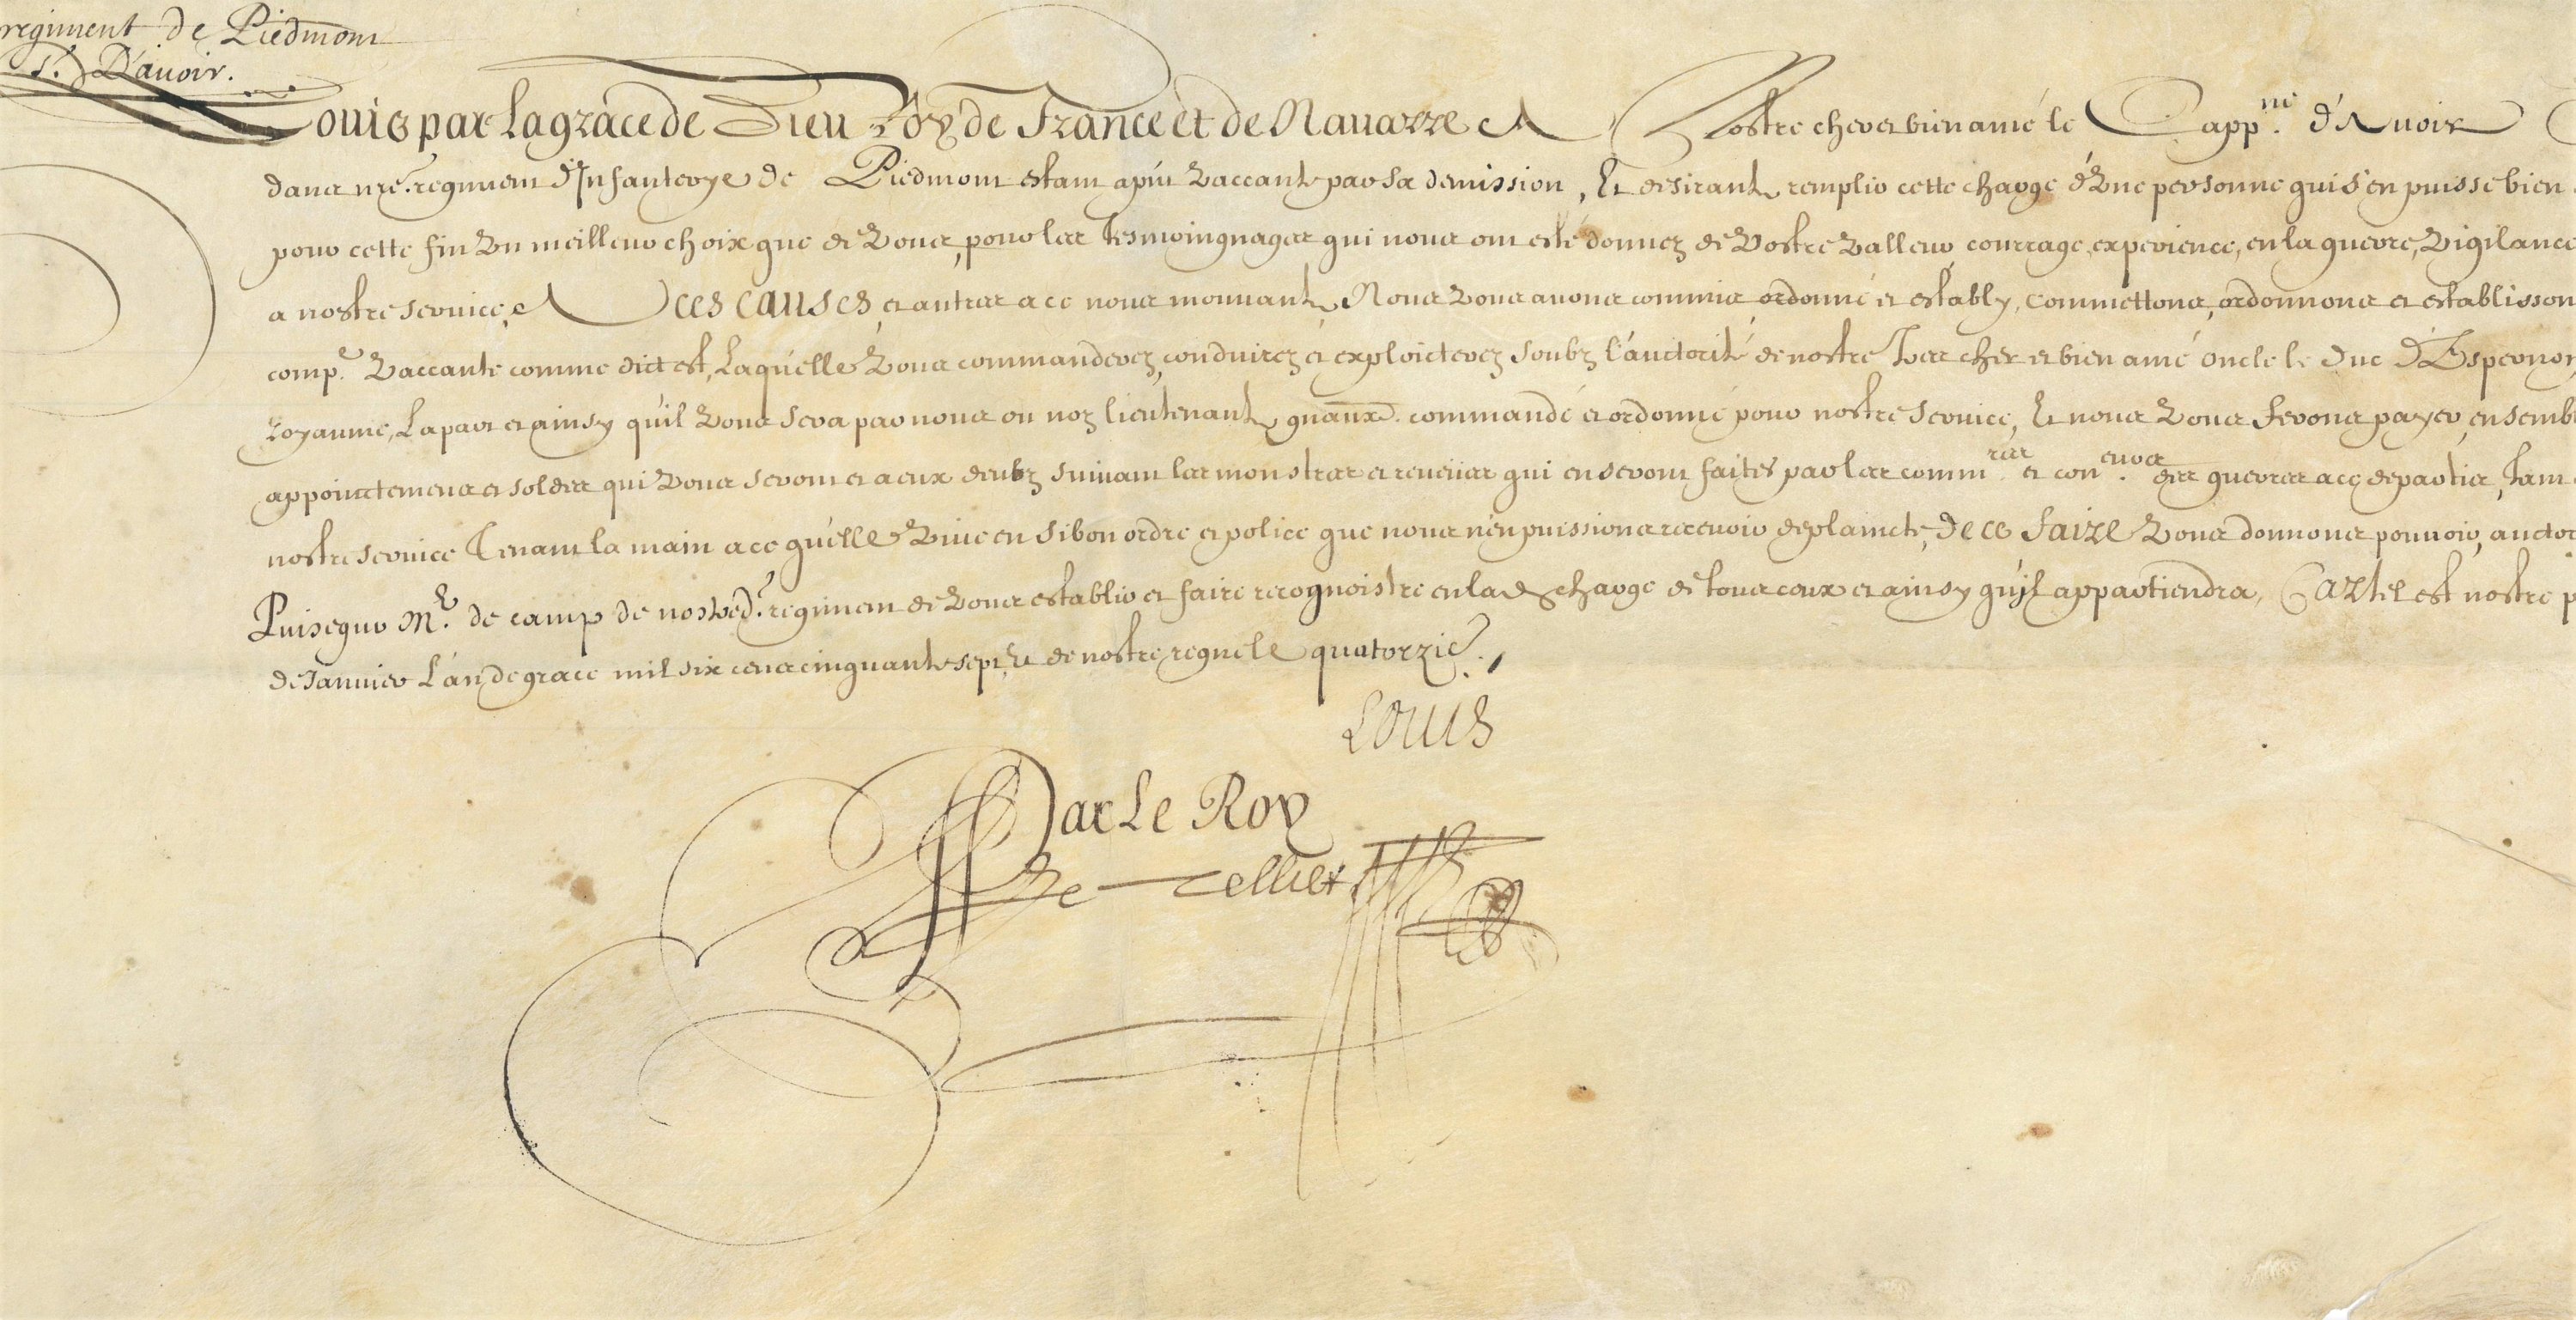 regiment de Piedmont
Sr. D'auoir.
Louis par la grace de Dieu Roy de France et de Nauarre A Nostre cher et bien amé le Cappne. d'Auoir
dans nre. regiment d'Infanterye de Piedmont estant apnt vaccante par sa demission, Et desirant remplir cette charge d'vne personne qui s'en puisse bien
pour cette fin vn meilleur choix que de vous, pour les tesmoingnages qui nous ont esté donnez de vostre valleur, courrage, experience, en la guerre, vigilance
a nostre seruice, A ces causes, et autres a ce nous mouuant, Nous vous auons commis ordonné et estably, commettons, ordonnons et establisson
compe. vaccante comme dict est, Laquelle vous commanderez, conduirez et exploicterez soubz l'auctorité de nostre tres cher et bien amé oncle le Duc d'Espernon
Royaume, La part et ainsy qu'il vous sera par nous ou noz lieutenants gnaux. commandé et ordonné pour nostre seruice, Et nous vous ferons payer, ensemb
appoinctemens et soldes qui vous seront et a eux deubz suiuant les monstres et reueües qui en seront faites par les commres. et conerolles. des guerres a ce departis, tant
nostre seruice Tenant la main a ce qu'elle viue en si bon ordre et police que nous n'en puissions receuoir de plaincte, De ce faire vous donnons pouuoir, auctor
Puisegur Mr. de camp de nostred. regiment de vous establir et faire recognoistre en lad. charge de tous ceux et ainsy qu'il appartiendra, Car tel est nostre p
de Januier L'an de grace mil six cens cinquante sept, Et de nostre regne le quatorzie.
Louis
Par Le Roy
Le Tellier